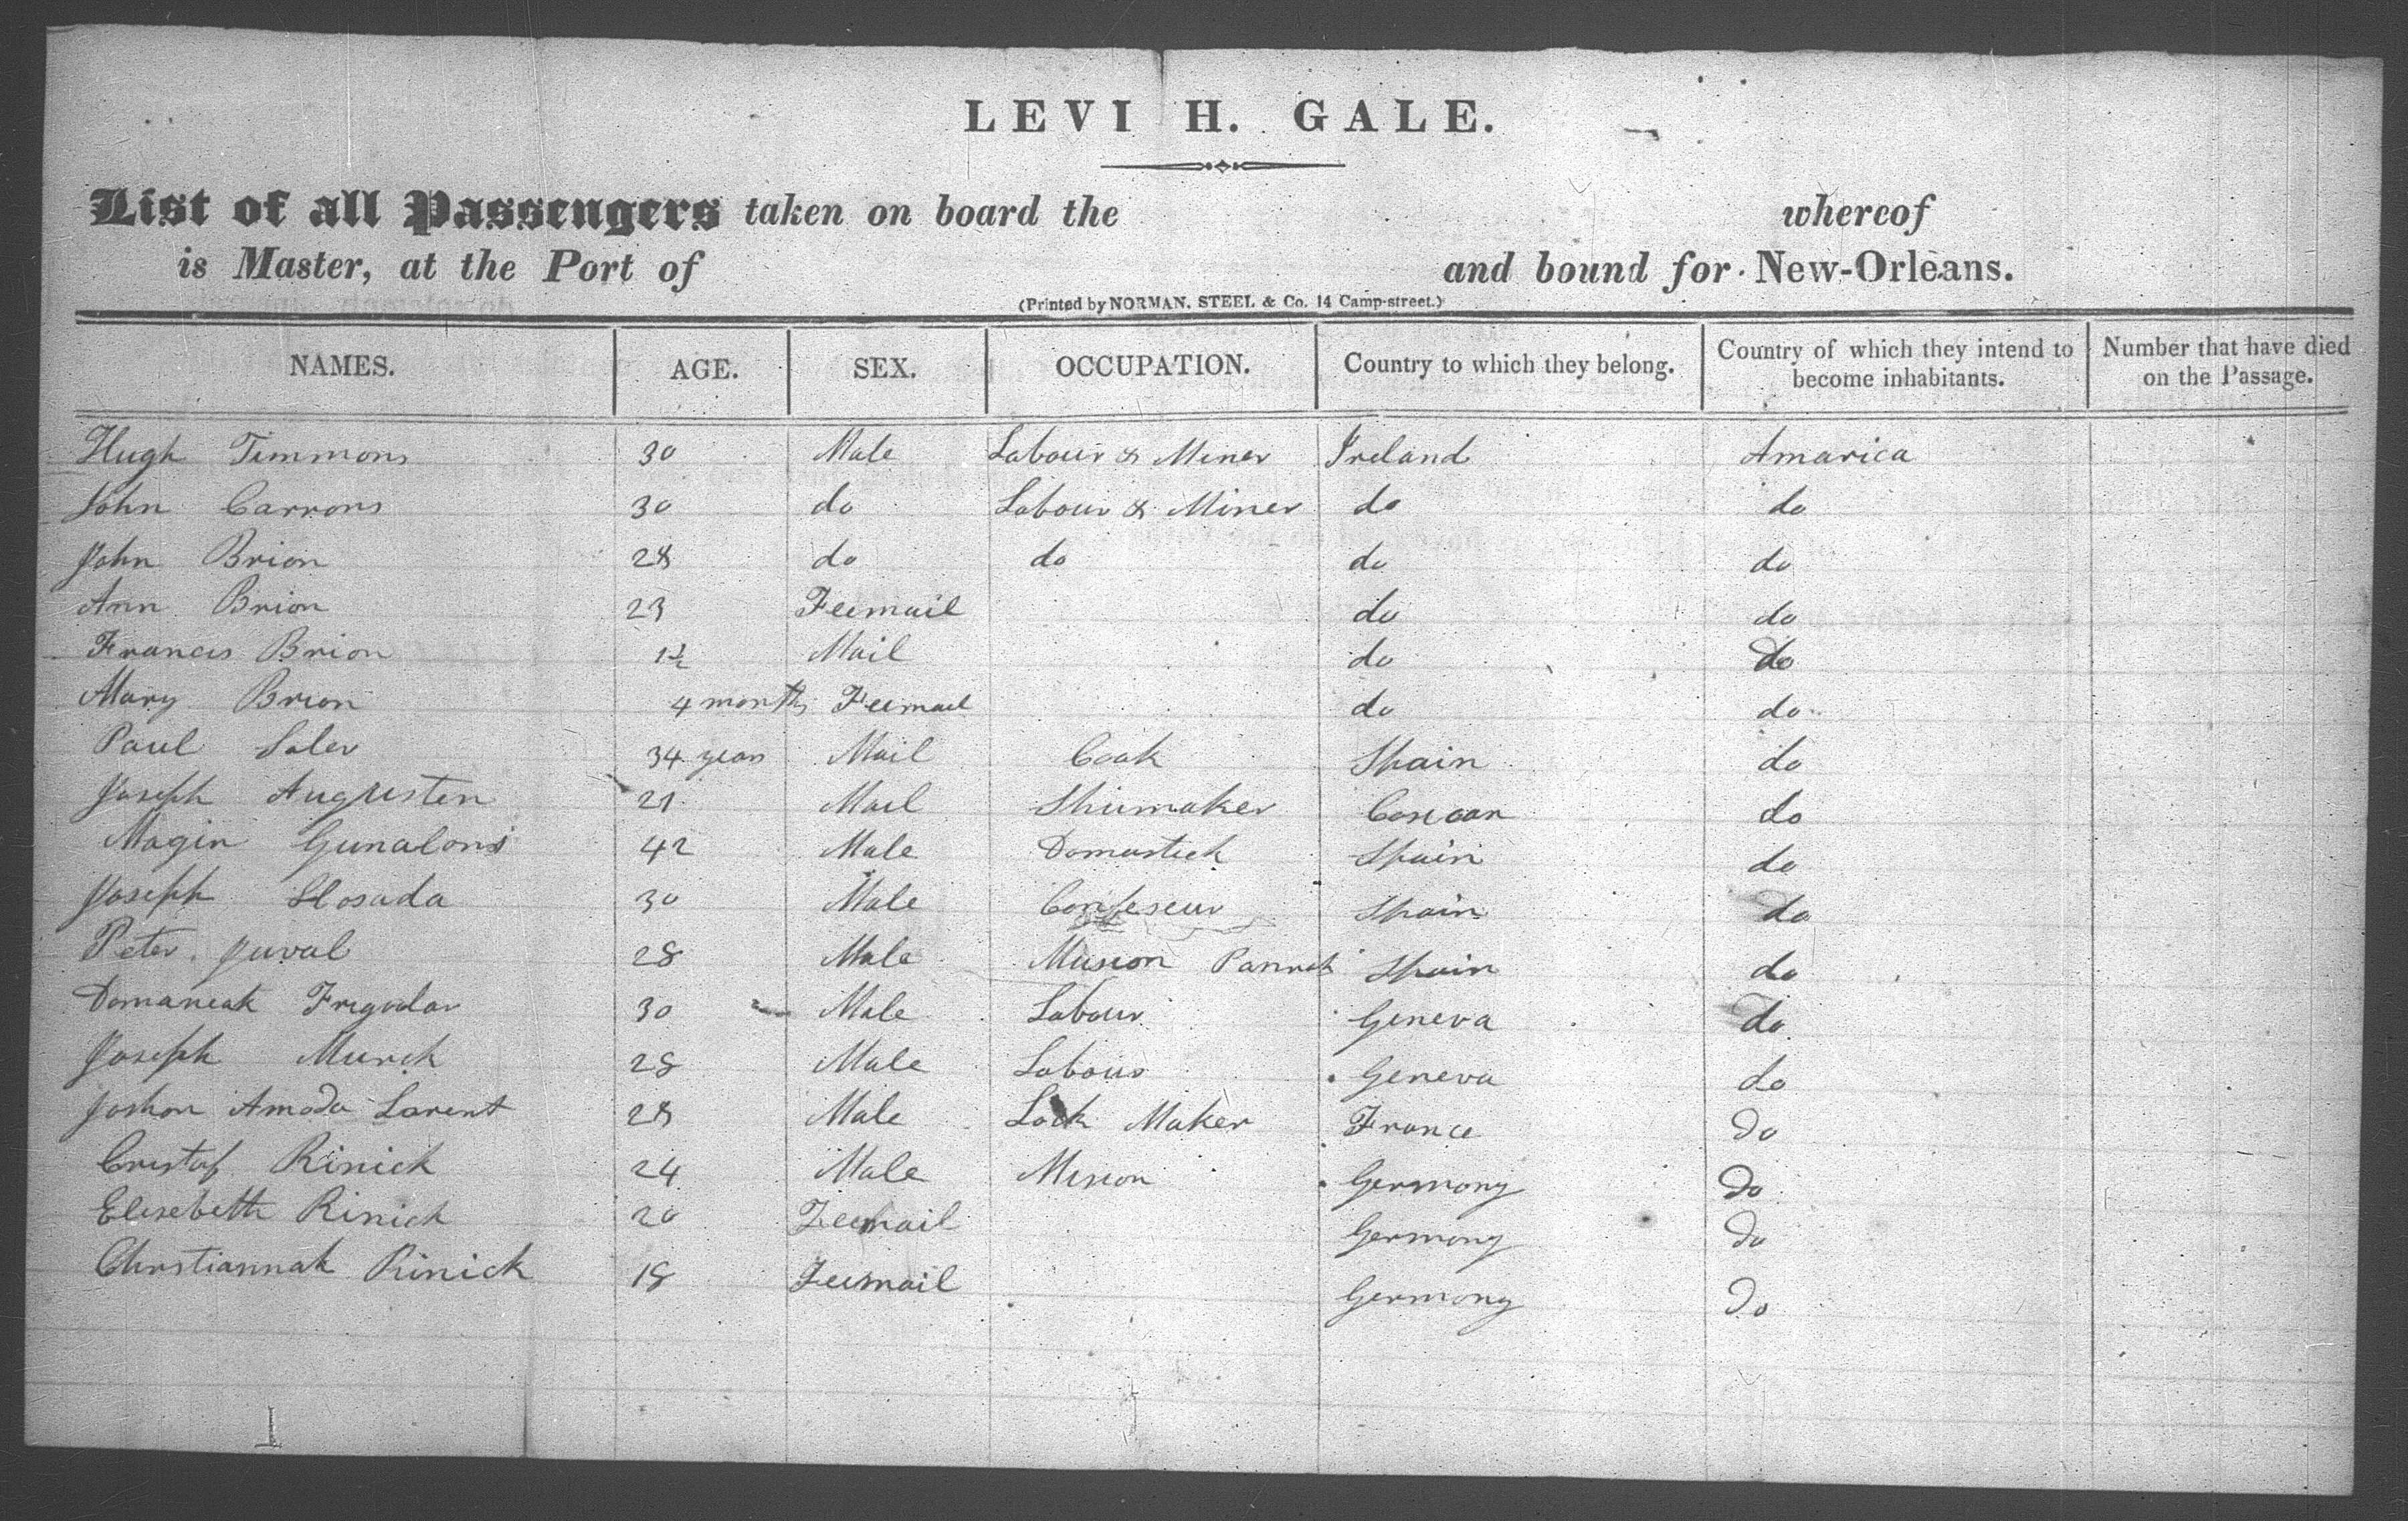 LEVI H. GALE.
List of all Passengers taken on board the whereof
is Master, at the Port of and bound for New-Orleans.
(Printed by NORMAN, STEEL & Co. 14 Camp-street.)
NAMES. AGE. SEX. OCCUPATION. Country to which they belong. Country of which they intend to become inhabitants. Number that have died on the Passage.
Hugh Timmons 30 Male Labour & Miner Ireland Amarica
John Carrons 30 do Labour & Miner do do
John Brion 28 do do do do
Ann Brion 23 Feemail do do
Francis Brion 1½ Mail do do
Mary Brion 4 months Feemail do do
Paul Soler 34 years Mail Cook Spain do
Joseph Augusten 21 Mail Shumaker do
Magin Gunalons 42 Male Domestick Spain do
Joseph Slosada 30 Male Spain do
Peter Juval 28 Male Musion Spain do
Domaneak Fregodar 30 Male Labour Geneva do
Joseph Murch 28 Male Labour Geneva do
Joshon Amada Larent 28 Male Lock Maker France do
Cristof Rinick 24 Male Mision Germony do
Elesebeth Rinick 20 Feemail Germony do
Chrstiannah Rinick 18 Feemail Germony do